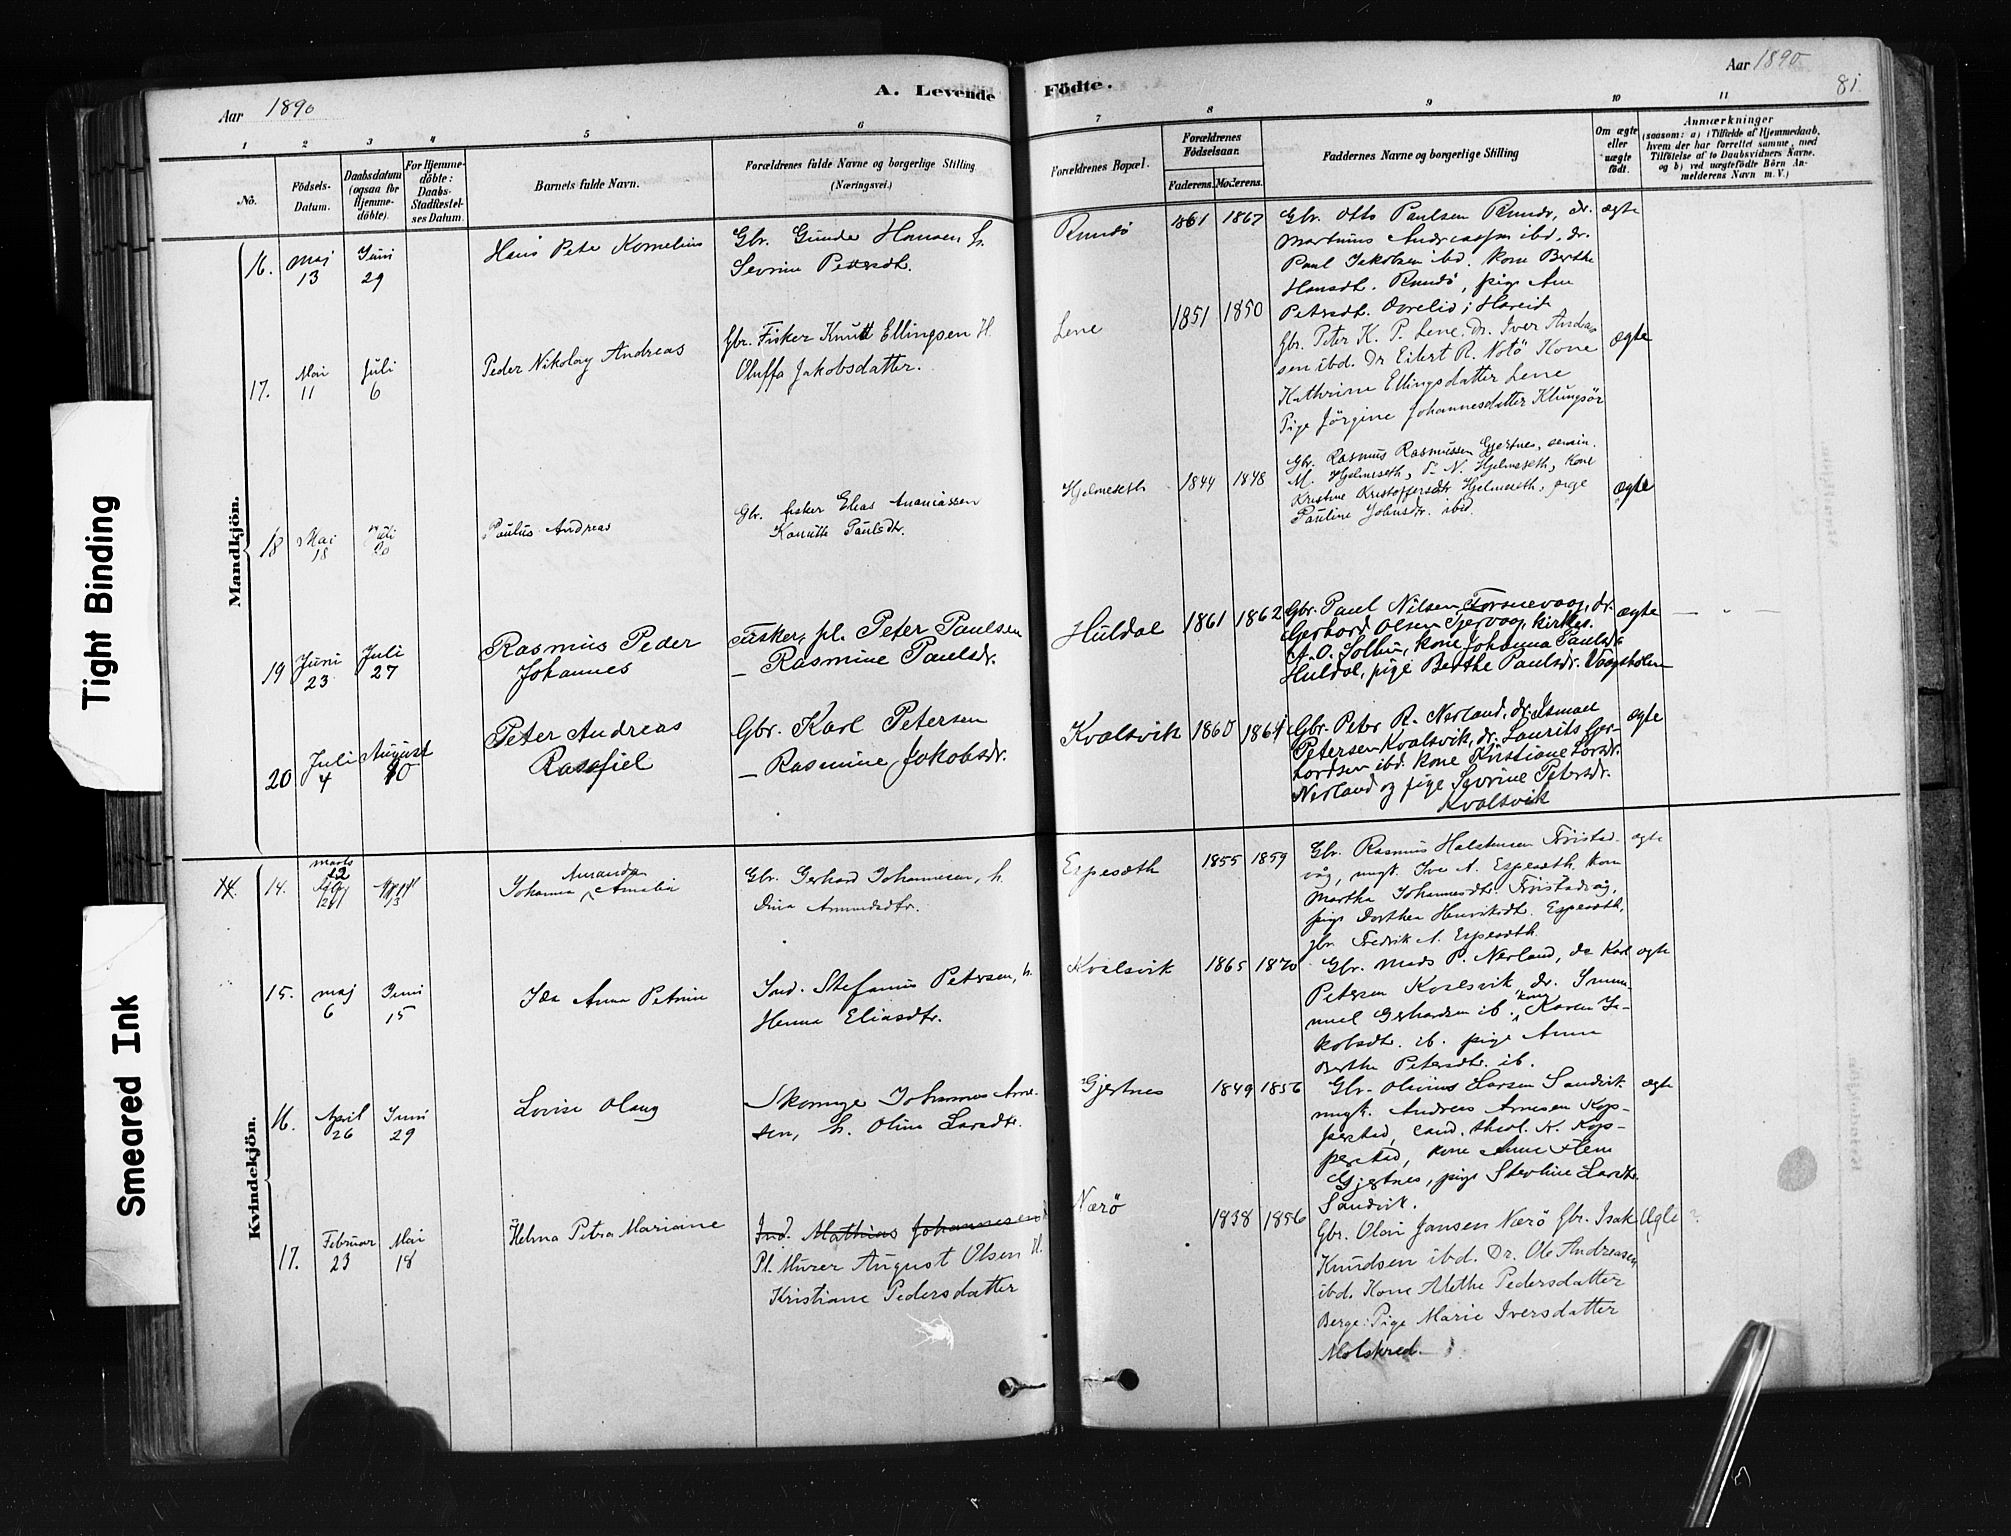 Aar 1890
A. Levende
Födte.
Aar 1890
81
1
2
3
4
5
6
7
8
9
10
11
No.
Födsels-
Datum.
Daabsdatum
(ogsaa for
Hjemme-
döbte).
For Hjemme-
döbte:
Daabs-
Stadfæstel-
ses Datum.
Barnets fulde Navn.
Forældrenes fulde Navne og borgerlige Stilling
(Næringsvei.)
Forældrenes Bopæl.
Forældrenes
Födselsaar.
Faderens.
Moderens.
Faddernes Navne og borgerlige Stilling
Om ægte
eller
uægte
födt.
Anmærkninger
(saasom: a) i Tilfælde af Hjemmedaab,
hvem der har forrettet samme, med
Tilföielse af to Daabsvidners Navne.
og b) ved uægtefödte Börn An-
melderens Navn m. V.)
Mandkjön.
16.
Maj
13
Juni
29
Hans Pete Kornelius
Gbr. Gunder Hansen, h.
Sevrine Petersdt.
Rundö
1861
1867
Gbr. Otto Paulsen Rundö, dr.
Martinus Andreassen ibd, dr.
Paul Jakobsen ibd. Kone Berthe
Hansdt. Rundö, pige Ane
Petersdt. Overlid i Hareid
ægte
17.
Mai
11
Juli
6
Peder Nikolay Andreas
Gbr. Fisker Knutt Ellingsen H.
Oluffa Jakobsdatter.
Lene
1851
1850
Gbr. Peter K. P. Lene. Dr. Iver Andrea
sen ibd. Dr Eilert R. Notö Kone
Kathrine Ellingsdatter Lene
Pige Jörgine Johannesdatter Klungsör
ægte
18
Mai
18
Juli
20
Paulus Andreas
Gbr. fisker Elias Ananiassen
Kanutte Paulsdtr.
Hjelmeseth
1844
1848
Gbr. Rasmus Rasmussen Gjertnes, semin.
M. Hjelmeseth, N. Hjelmeseth, kone
Kristine Kristoffersdtr Hjelmeseth, pige
Pauline Johnsdtr. ibid.
ægte
19
Juni
23
Juli
27
Rasmus Peder
Johannes
Fisker, pl. Peter Paulsen
— Rasmine Paulsdr.
Huldal
1861
1862
Gbr. Paul Nilsen Torsnevaag, dr.
Gerhard Olsen Tjervaag, kirkes.
A. O. Solhu, kone Johanna Paulsdr
Huldal, pige Berthe Paulsdr. Vaagsholm
ægte
20
Juli
4
August
10
Peter Andreas
Rasafiel
Gbr. Karl Petersen
— Rasmine Jakobsdr.
Kvalsvik
1860
1864
Gbr. Peter R. Nerland, dr. Ismael
Petersen Kvalsvik, dr. Laurits Ger-
hardsen ibd. kone Kristiane Larsdr.
Nerland og pige Sevrine Petersdr.
Kvalsvik
ægte
Kvindekjön.
14.
14.
Marts
12
April
13
Amanda
Johanna Amelia
Gbr. Gerhard Johannesen, h.
Dina Amundsdtr.
Espesæth
1855
1859
Gbr. Rasmus Halstensen Fröistad-
våg, ungk. Ive A. Espesæth, kone
Martha Johannesdt. Fröistadvåg,
pige Dorthea Henriksdt. Espesæth,
gbr. Fredrik A. Espesæth.
ægte
15.
Maj
6
Juni
15
Ida Anna Petrine
Ind. Stefanus Petersen, h.
Hanna Eliasdtr.
Kvalsvik
1865
1870
Gbr. Mads P. Nerland, do Karl
Petersen Kvalsvik, dr. Imma-
nuel Gerhardsen ib. kone Karen Ja-
kobsdt. ib. pige Anne
Berthe Petersdt. ib.
ægte
16.
April
26
Juni
29
Lovise Olaug
Skomager Johannes Arne-
sen, h. Olina Larsdtr.
Gjertnes
1849
1856
Gbr. Olivius Larsen Sandvik
ungk. Andreas Arnesen Kop-
perstad, cand. theol. N. Kop-
perstad, kone Anne Flem
Gjertnes, pige Stevline Larsdtr.
Sandvik.
ægte
17.
Februar
23
Mai
18
Helma Petra Mariane
Ind. Mathias Johannesen
Pl. Murer August Olsen H.
Kristiane Pedersdatter
Nærö
1838
1856
Gbr. Olai Jansen Nærö Gbr. Isak
Knudsen ibd. Dr. Ole Andreasen
ibd. Kone Alethe Pedersdatter
Berge. Pige Marie Iversdatter
Molskred.
Ægte
?
Tight Binding
Smeared Ink